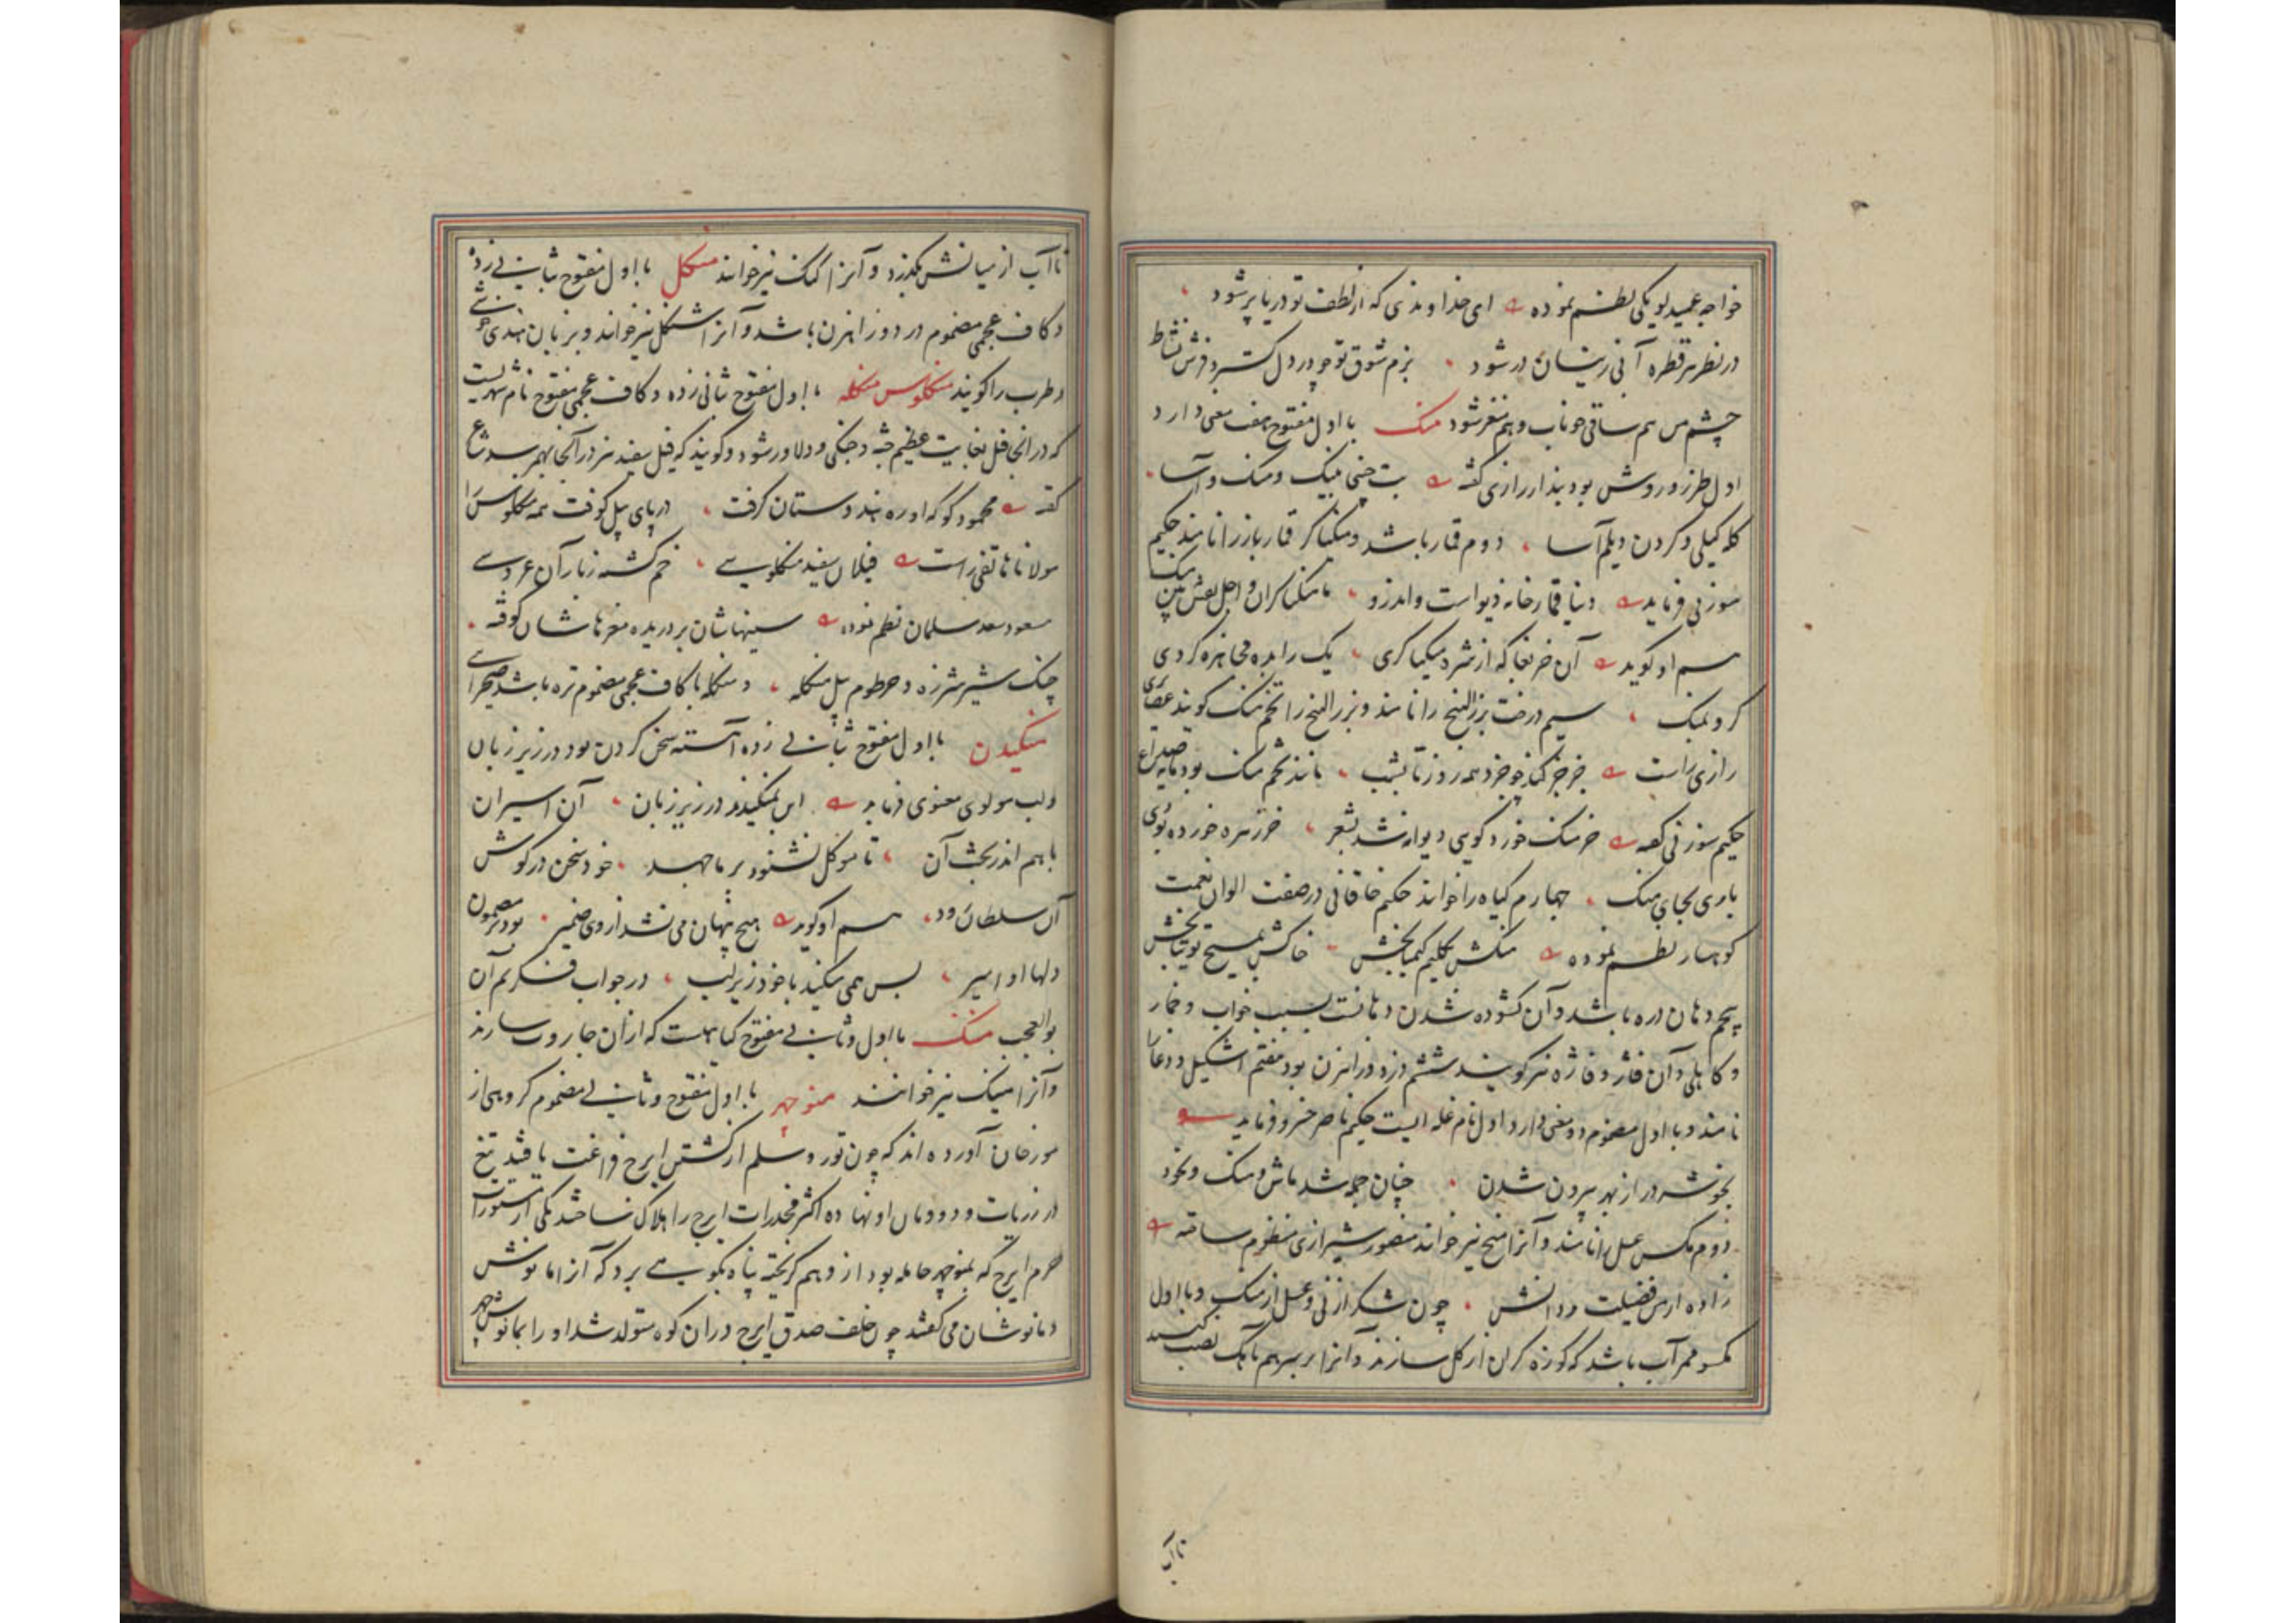 خواجه عمید لویکی نظم نموده ای خداوندی که از لطف تو دریا پر شود
در نظر هر قطره آنی زیشان در شود بزم شوق تو چو در دل گسترد فرش نشاط
چشم من هم ساقی خوناب و هم ساغر شود منک با اول مفتوح هفت معنی دارد
اول طرز و روش بود بندار رازی گفته بت جنی منک و آسا
کله گیلی و کردن دیلم آسا دوم قمار باشد و منکیاگر قمارباز را نامند حکیم
سوزنی فرماید دنیا قمارخانه دیو است و اندرو ما منکیاگران و اجل نقش بین منک
هم او گوید آن خر بغا که از شره منکیاگری یک رابده
کرو بمنک سیم درخت بزرالبنج را نامند و بزرالبنج را تخم منک گویند غضائری
رازی راست خورد همه روز تا بشب مانند تخم منک بود مایه صداع
حکیم سوزنی گفته خر منک خورد گویی دیوانه شد بشعر خرزهره خورده بودی
باری بجای منک چهارم گیاه را خوانند حکیم خاقانی در صفت الوان نعمت
کوهسار نظم نموده منکش بکلیم کیمیابخش خاکش بمسیح توتیابخش
پنجم دهان دره باشد و آن گشوده شدن دهانست بسبب خواب و خمار
و کاهلی و آن فاژ و فاژه نیز گویند ششم دزد و راهزن بود هفتم اشکیل و دغا را
نامند و با اول مضموم دو معنی دارد اول نام غله ایست حکیم ناصر خسرو فرماید
بخوشه در از بهر بیرون شدن چنان جمله شد ماش و منک و نخود
دوم مکس عسل را نامند و آنرا منج نیز خوانند منصور شیرازی منظوم ساخته
زاده از من فضیلت و دانش چون شکر از نی و عسل از منک و با اول
مکسور ممر آب باشد که کوزه گران از گل سازند و آنرا بر سر هم باهک نصب کنند
تا آب
تا آب از میانش بگذرد و آنرا گنگ نیز خوانند منگل با اول مفتوح بثانی زده
و کاف عجمی مضموم در دوراهزن باشد و آنرا شنگل نیز خوانند و بزبان هندی خوشی
و طرب را گویند منکلوس منکله با اول مفتوح ثانی زده و کاف عجمی مفتوح نام شهریست
که در آنجا فیل بغایت عظیم جثه و جنگی و دلاور شود و گویند که فیل سفید نیز در آنجا بهم رسد شاعر
گفته محمود کو که او ره هندوستان گرفت در پای پیل کوفت همه منکلوس را
مولانا هاتفی راست فیلان سفید منکلوسی خم گشته ز بار آن عروسی
مسعود سعد سلمان نظم نموده سینهاشان بردریده مغزهاشان کوفته
چنگ شیر شرزه و خرطوم پیل منکله و منکله با کاف عجمی مضموم تره باشد صحرایی
منکیدن با اول مفتوح بثانی زده آهسته سخن کردن بود در زیر زبان
و لب مولوی معنوی فرماید این بمنکیدند در زیر زبان آن اسیران
با هم اندر بحث آن تا موکل نشنود بر ما جهد خود سخن در گوش
آن سلطان ود هم او گوید هیچ پنهان می نشد از وی ضمیر بود بر مضمون
دلها او امیر بس همی منکید با خود زیر لب در جواب فکرتم آن
بوالعجب منک با اول و ثانی مفتوح گیاهیست که ازان جاروب سازند
و آنرا منیک نیز خوانند منوچهر با اول مفتوح و ثانی مضموم گروهی از
مورخان آورده اند که چون تور و سلم از کشتن ایرج فراغت یافتند تیغ
در ذریات و دودمان او نهاده اکثر مخدرات ایرج را هلاک ساختند یکی از مستورات
حرم ایرج که بمنوچهر حامله بود از وهم گریخته پناه بکوهی برد که آنرا مانوش
و مانوشان می گفتند چون خلف صدق ایرج دران کوه متولد شد او را بمانوش چهر